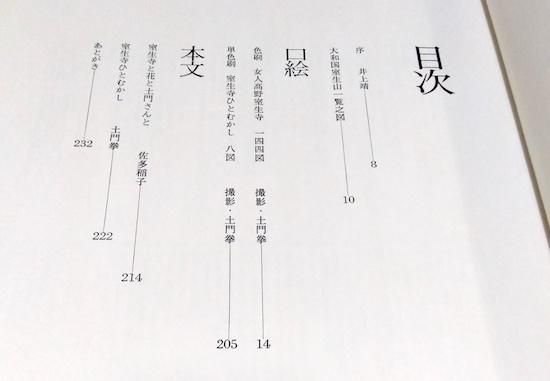 目次
序 井上靖 8
大和国室生山一覧之図 10
口絵
色刷 女人高野室生寺 一四四図 撮影・土門拳 14
単色刷 室生寺ひとむかし 八図 撮影・土門拳 205
本文
室生寺と花と土門さんと 佐多稲子 214
室生寺ひとむかし 土門拳 222
あとがき 232